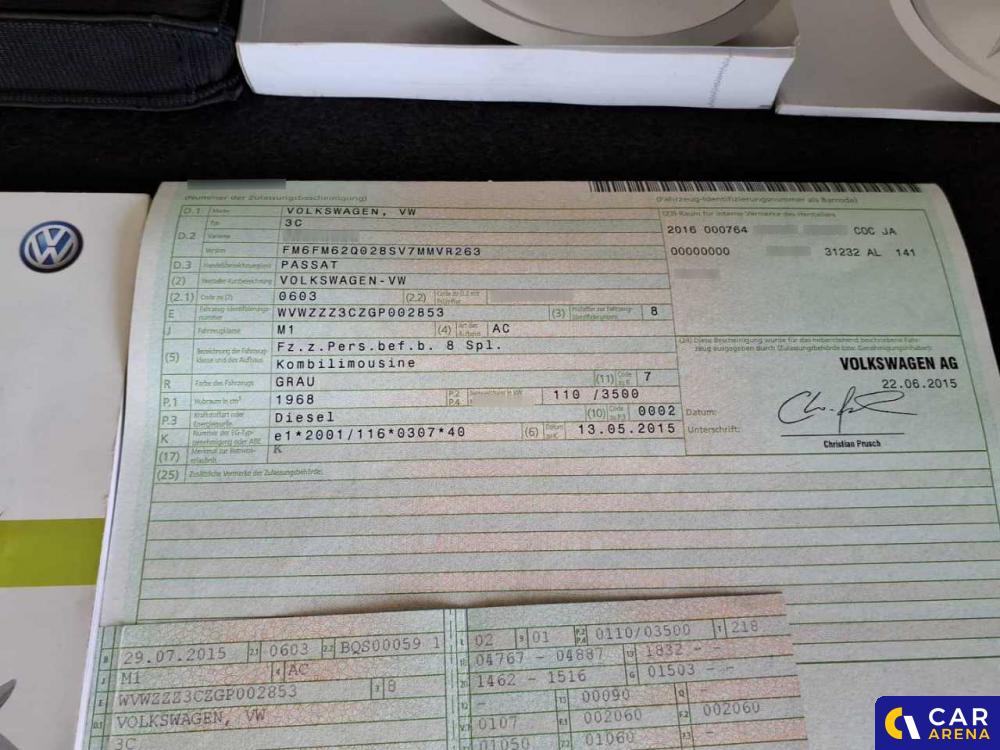 (Nummer der Zulassungsbescheinigung)
(Fahrzeug-Identifizierungsnummer als Barcode)
D.1 Marke VOLKSWAGEN, VW
(23) Raum für interne Vermerke des Herstellers
D.2 Typ 3C
2016 000764 COC JA
Variante
Version FM6FM62Q028SV7MMVR263
00000000 31232 AL 141
D.3 Handelsbezeichnung(en) PASSAT
(2) Hersteller-Kurzbezeichnung VOLKSWAGEN-VW
(2.1) Code zu (2) 0603 (2.2) Code zu D.2 mit Prüfziffer
E Fahrzeug-Identifizierungsnummer WVWZZZ3CZGP002853 (3) Prüfziffer zur Fahrzeug-Identifizierungsnr. 8
J Fahrzeugklasse M1 (4) Art des Aufbaus AC
(24) Diese Bescheinigung wurde für das nebenstehend beschriebene Fahrzeug ausgegeben durch (Zulassungsbehörde bzw. Genehmigungsinhaber):
(5) Bezeichnung der Fahrzeugklasse und des Aufbaus Fz.z.Pers.bef.b. 8 Spl.
Kombilimousine
VOLKSWAGEN AG
R Farbe des Fahrzeugs GRAU (11) Code zu R 7
22.06.2015
P.1 Hubraum in cm³ 1968 P.2 P.4 110 /3500
P.3 Kraftstoffart oder Energiequelle Diesel (10) Code zu P.3 0002
Datum:
K Nummer der EG-Typgenehmigung oder ABE e1*2001/116*0307*40 (6) Datum zu K 13.05.2015
Unterschrift:
Christian Prusch
(17) Merkmal zur Betriebserlaubnis K
(25) Zusätzliche Vermerke der Zulassungsbehörde:
B 29.07.2015 2.1 0603 2.2 BQS00059 1
L 02 9 01 P.2 P.4 0110/03500 T 218
J M1 4 AC
18 04767 - 04887 19 1832 - -
E WVWZZZ3CZGP002853 3 8
20 1462 - 1516 G 01503 - -
12 - 13 00090 Q -
D.1 VOLKSWAGEN, VW
V.7 0107 F.1 002060 F.2 002060
3C
01050 01060
CAR
ARENA